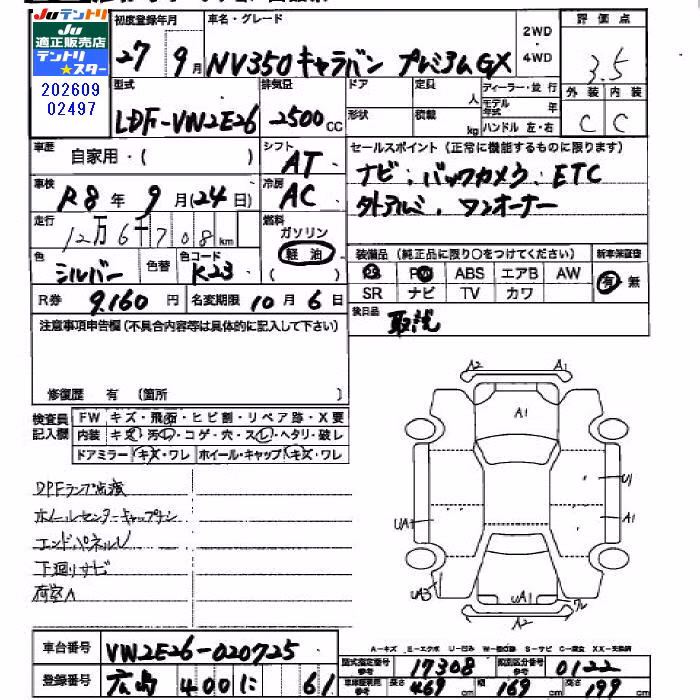 JU テントリ
JU
適正販売店
テントリ
★スター
202609
02497
初度登録年月
27 9月
車名・グレード
NV350 キャラバン プレミアムGX
2WD
4WD
評価点
3.5
外装 内装
C C
型式
LDF-VW2E26
排気量
2500 CC
ドア
形状
定員
人
積載
kg
ディーラー・並行
モデル年式 年
ハンドル 左・右
車歴
自家用・( )
シフト
AT
セールスポイント(正常に機能するものに限ります)
ナビ、バックカメラ、ETC
外アルミ、ワンオーナー
車検
R8年 9月(24日)
冷房
AC
走行
12万6千708km
燃料
ガソリン
軽油
( )
色
シルバー
色替
色コード
K23
装備品(純正品に限り○をつけてください)
新車保証書
PS PW ABS エアB AW
SR ナビ TV カワ
有 無
R券 9,160円
名変期限 10月6日
後日品
取説
注意事項申告欄(不具合内容等は具体的に記入して下さい)
修復歴 有 〔箇所 〕
検査員
記入欄
FW キズ・飛石・ヒビ割・リペア跡・X要
内装 キズ・汚レ・コゲ・穴・スレ・ヘタリ・破レ
ドアミラー キズ・ワレ ホイール・キャップ キズ・ワレ
DPFランプ点滅
ホイールセンターキャップナシ
エンドパネルU
下廻りサビ
荷室A
A2 A1
A1
U1
UA1 A1
UA3 UA1
A2
車台番号 VW2E26-020725
登録番号 広島 400 に 61
A-キズ E-エクボ U-凹ミ W-補修跡 S-サビ C-腐食 XX-交換済
型式指定番号 参考 17308
類別区分番号 参考 0122
参考 長さ 469 cm 幅 169 cm 高さ 199 cm